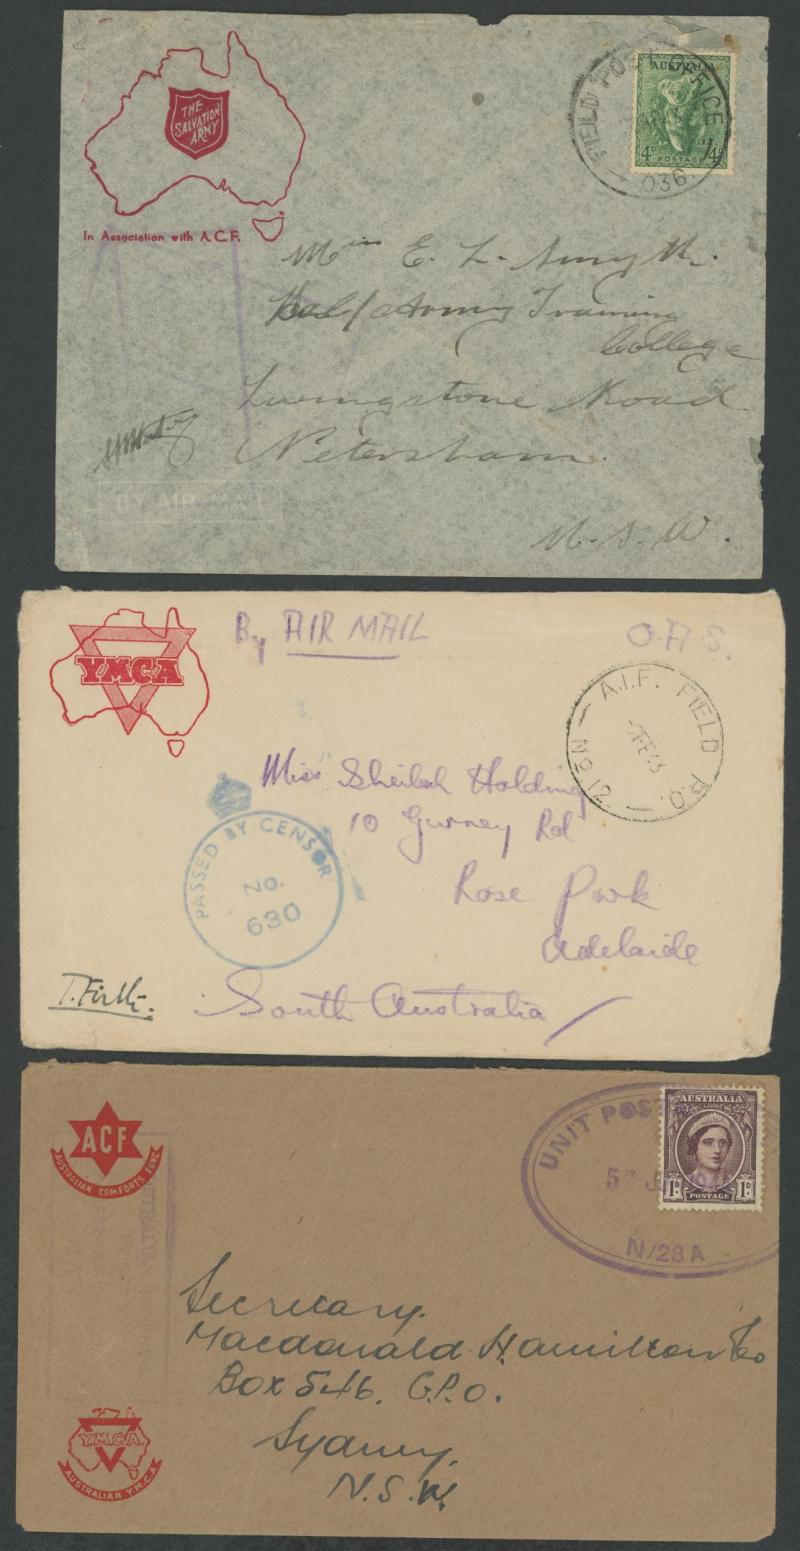 THE
SALVATION
ARMY
In Association with A.C.F.
FIELD POST OFFICE
036
AUSTRALIA
4D 4D
POSTAGE
Miss E. L. Smyth.
Sal/Army Training
College
Livingstone Road
Petersham.
N. S. W.
BY AIR MAIL
YMCA
By AIR MAIL
O.A.S.
A.I.F. FIELD P.O.
FE 43
Miss Sheilah Holding
10 Gurney Rd
Rose Park
Adelaide
South Australia
PASSED BY CENSOR
No.
630
T. Firth.
ACF
AUSTRALIAN COMFORTS FUND
UNIT POST
N/28A
AUSTRALIA
1D 1D
POSTAGE
Secretary.
Macdonald Hamilton & Co
Box 546. G.P.O.
Sydney.
N.S.W.
Y.M.C.A.
AUSTRALIAN Y.M.C.A.